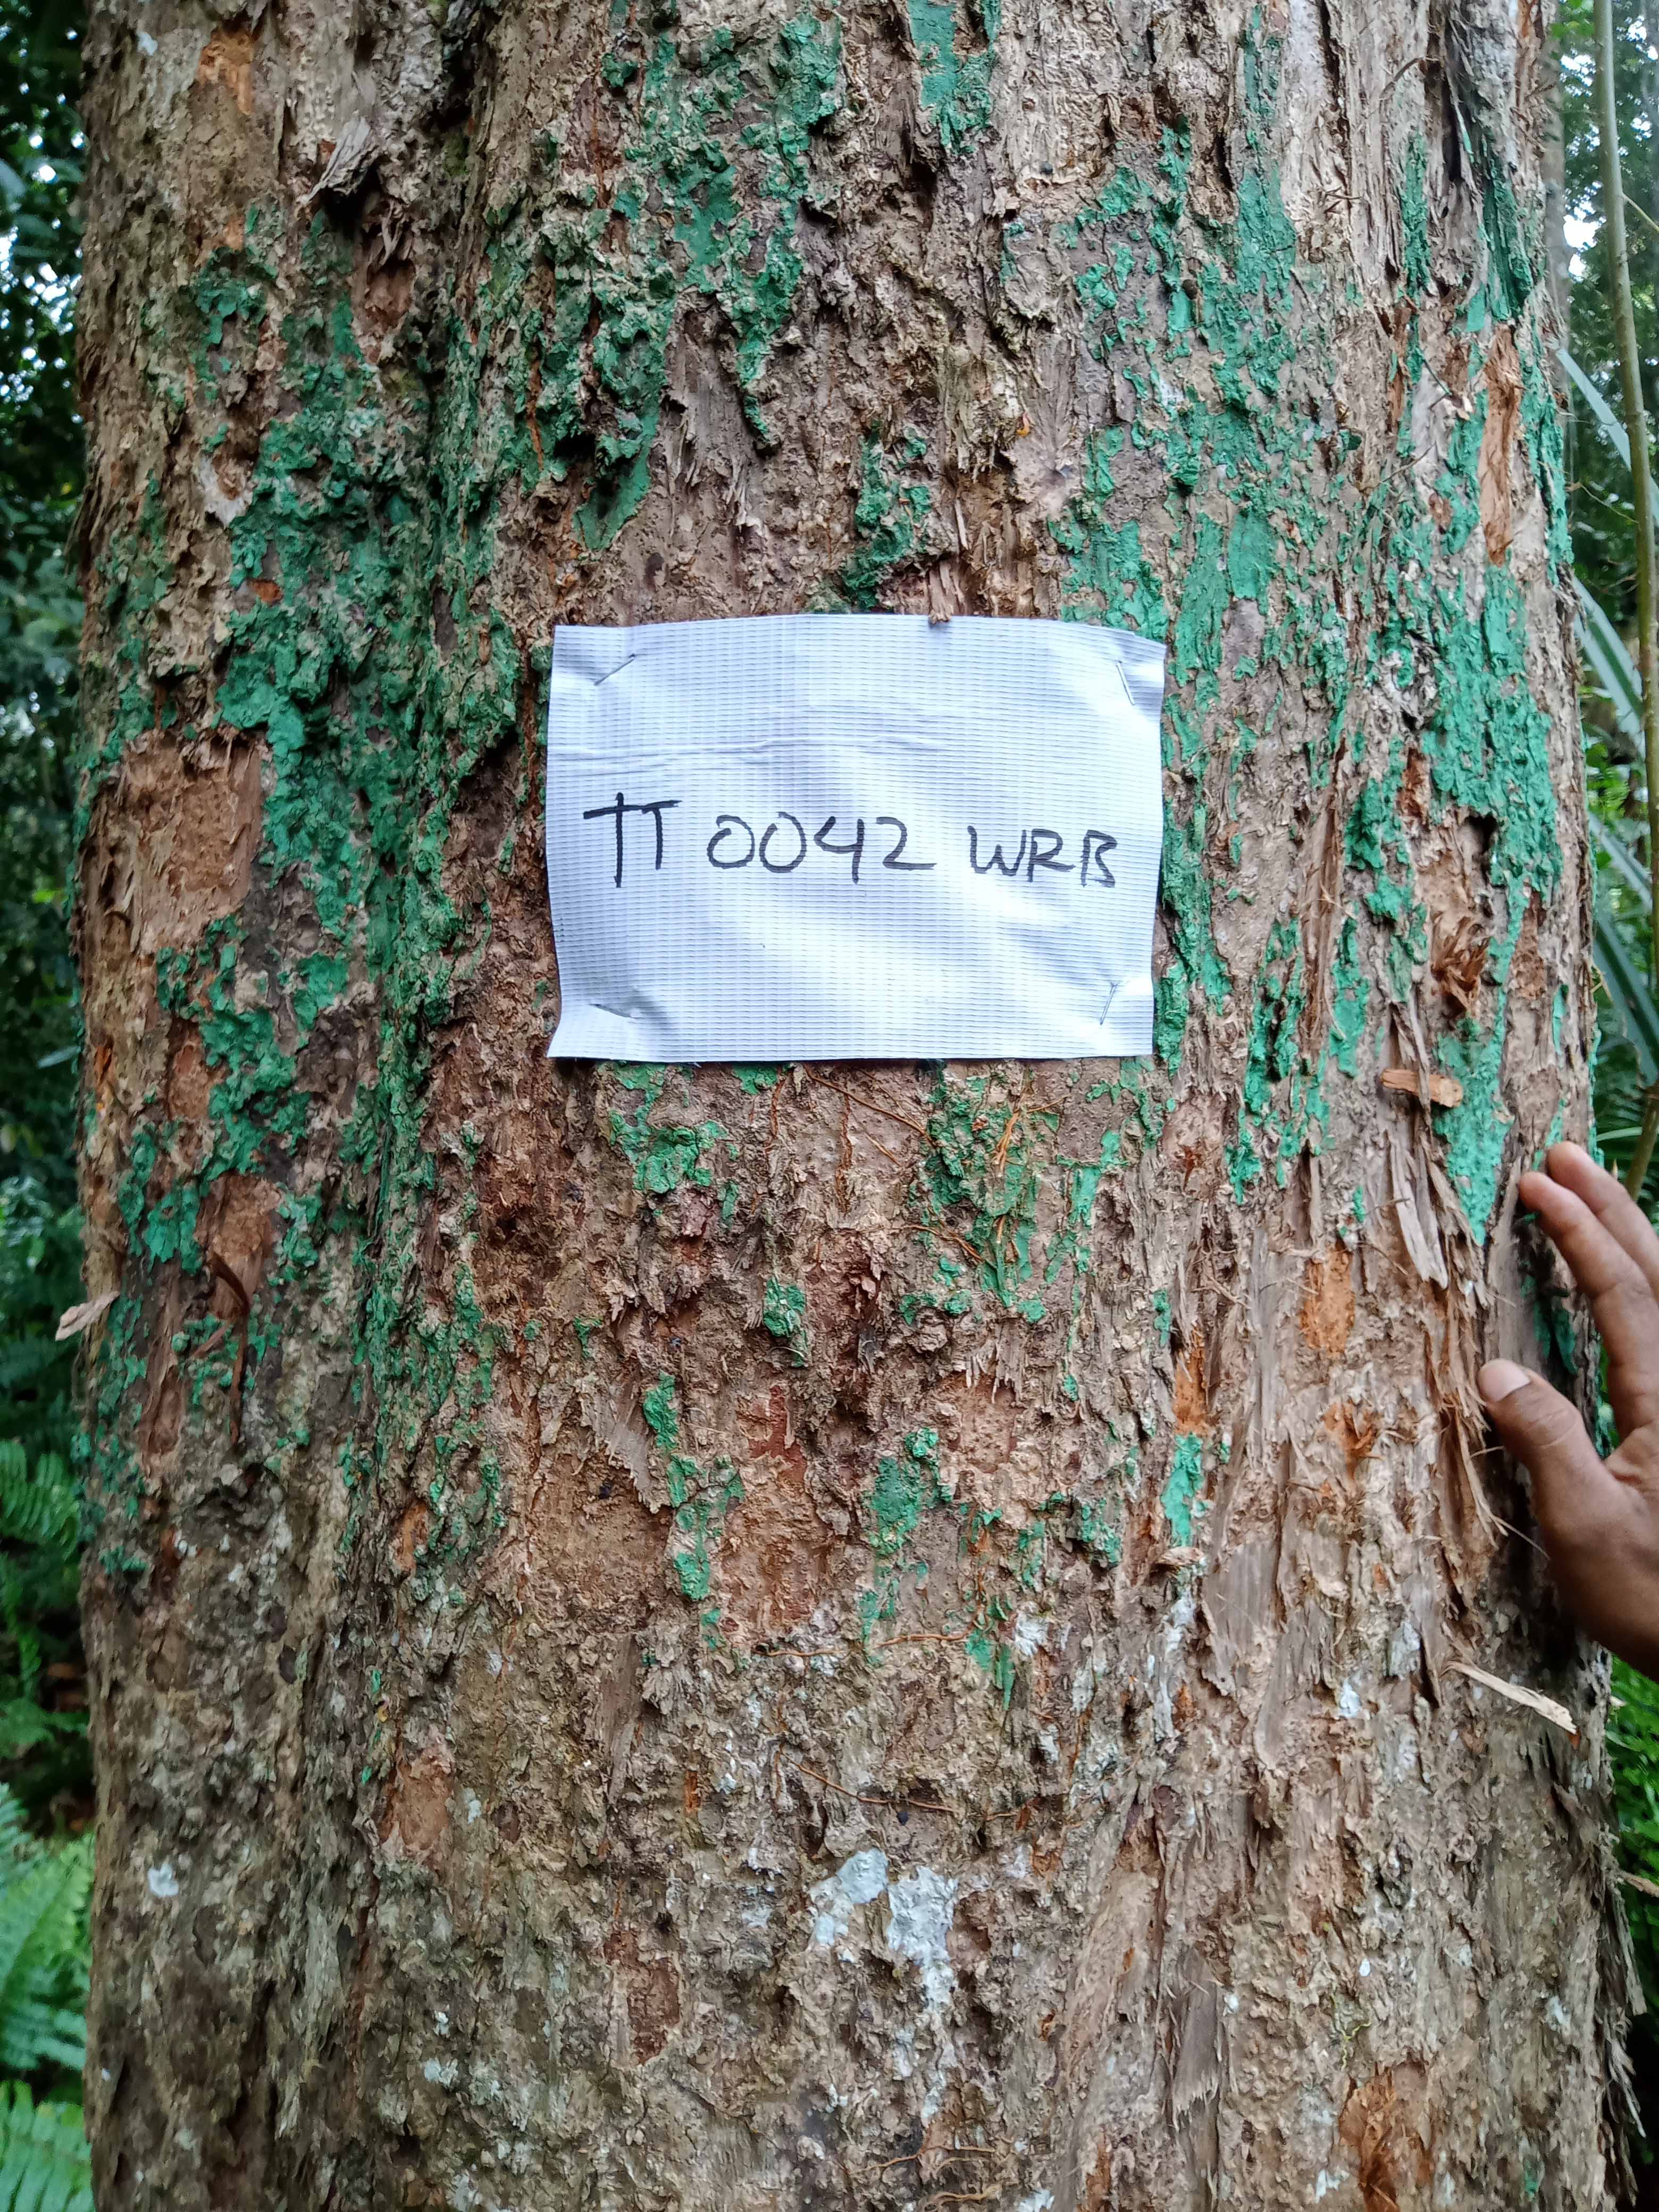 TT 0042 WRB